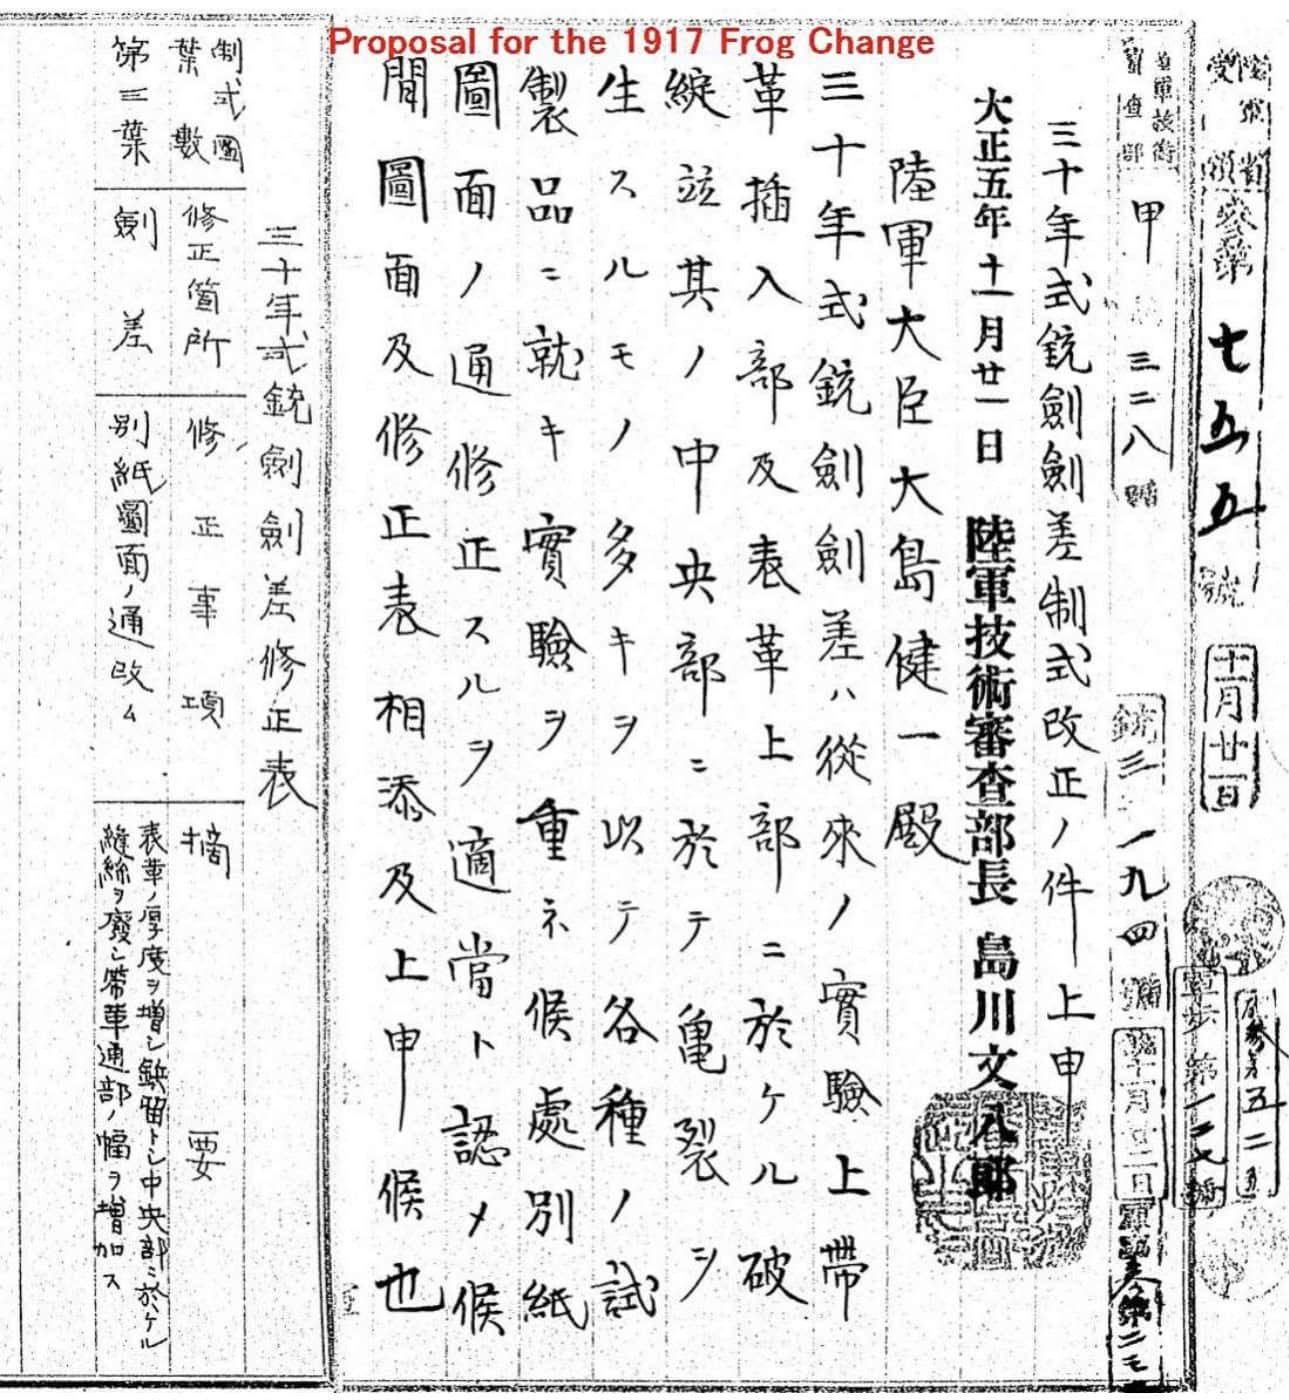 Proposal for the 1917 Frog Change
七五五號
十一月廿一日
甲
三二八號
一九四
三十年式銃劍劍差制式改正ノ件上申
大正五年十一月廿一日 陸軍技術審査部長 島川文八郎
陸軍大臣大島健一殿
三十年式銃劍劍差ハ從來ノ實驗上帶
革插入部及表革上部ニ於ケル破
綻竝其ノ中央部ニ於テ亀裂ヲ
生スルモノ多キヲ以テ各種ノ試
製品ニ就キ實驗ヲ重ネ候處別紙
圖面ノ通修正スルヲ適當ト認メ候
間圖面及修正表相添及上申候也
三十年式銃劍劍差修正表
制式圖葉數 修正箇所 修正事項 摘要
第三葉 劍差 別紙圖面ノ通改ム
表革ノ厚度ヲ増シ鋲留トシ中央部ニ於ケル
縫絲ヲ廢シ帶革通部ノ幅ヲ増加ス